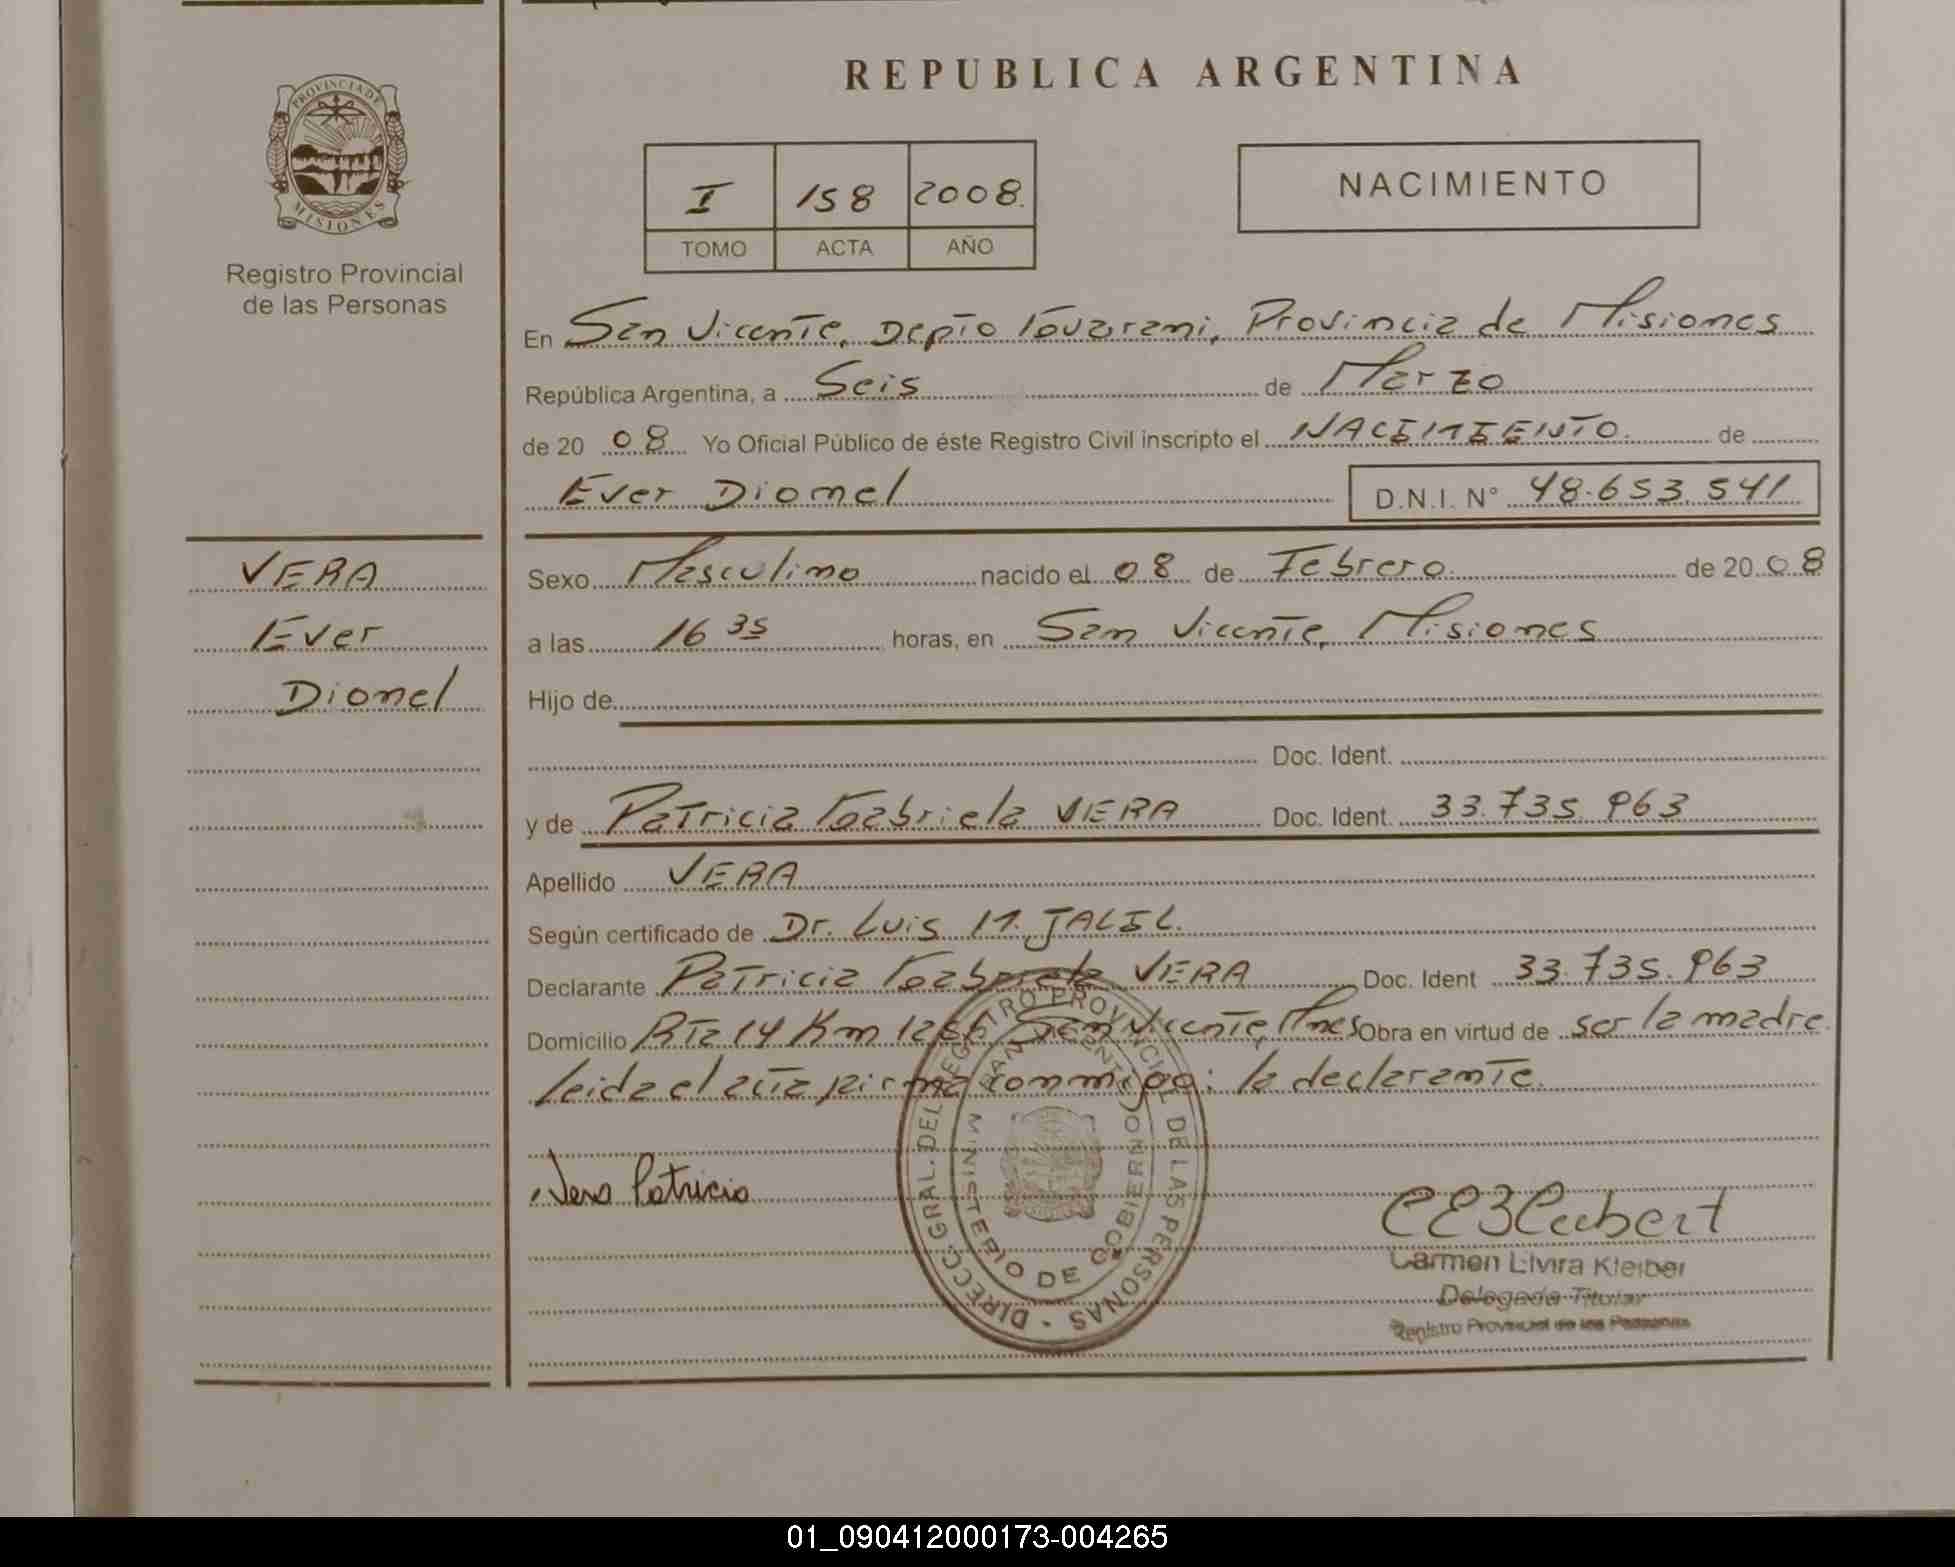 REPUBLICA ARGENTINA
PROVINCIA DE
MISIONES
Registro Provincial
de las Personas
I 158 2008
TOMO ACTA AÑO
NACIMIENTO
En San Vicente, Depto Guarani, Provincia de Misiones
República Argentina, a Seis de Marzo
de 20 08 Yo Oficial Público de éste Registro Civil inscripto el NACIMIENTO de
Ever Dionel D.N.I. N° 48.653.541
VERA
Ever
Dionel
Sexo Masculino nacido el 08 de Febrero de 20 08
a las 16 35 horas, en San Vicente, Misiones
Hijo de
Doc. Ident.
y de Patricia Gabriela VERA Doc. Ident. 33.735.963
Apellido VERA
Según certificado de Dr. Luis M. JALIL.
Declarante Patricia Gabriela VERA Doc. Ident 33.735.963
Domicilio Rta 14 Km 1256 San Vicente, Mnes Obra en virtud de ser la madre
leida el acta firma conmigo: la declarante.
DIRECC. GRAL. DEL REGISTRO PROVINCIAL DE LAS PERSONAS
SAN VICENTE
MINISTERIO DE GOBIERNO
Vera Patricia
Carmen Elvira Kleiber
Delegada Titular
Registro Provincial de las Personas
01_090412000173-004265